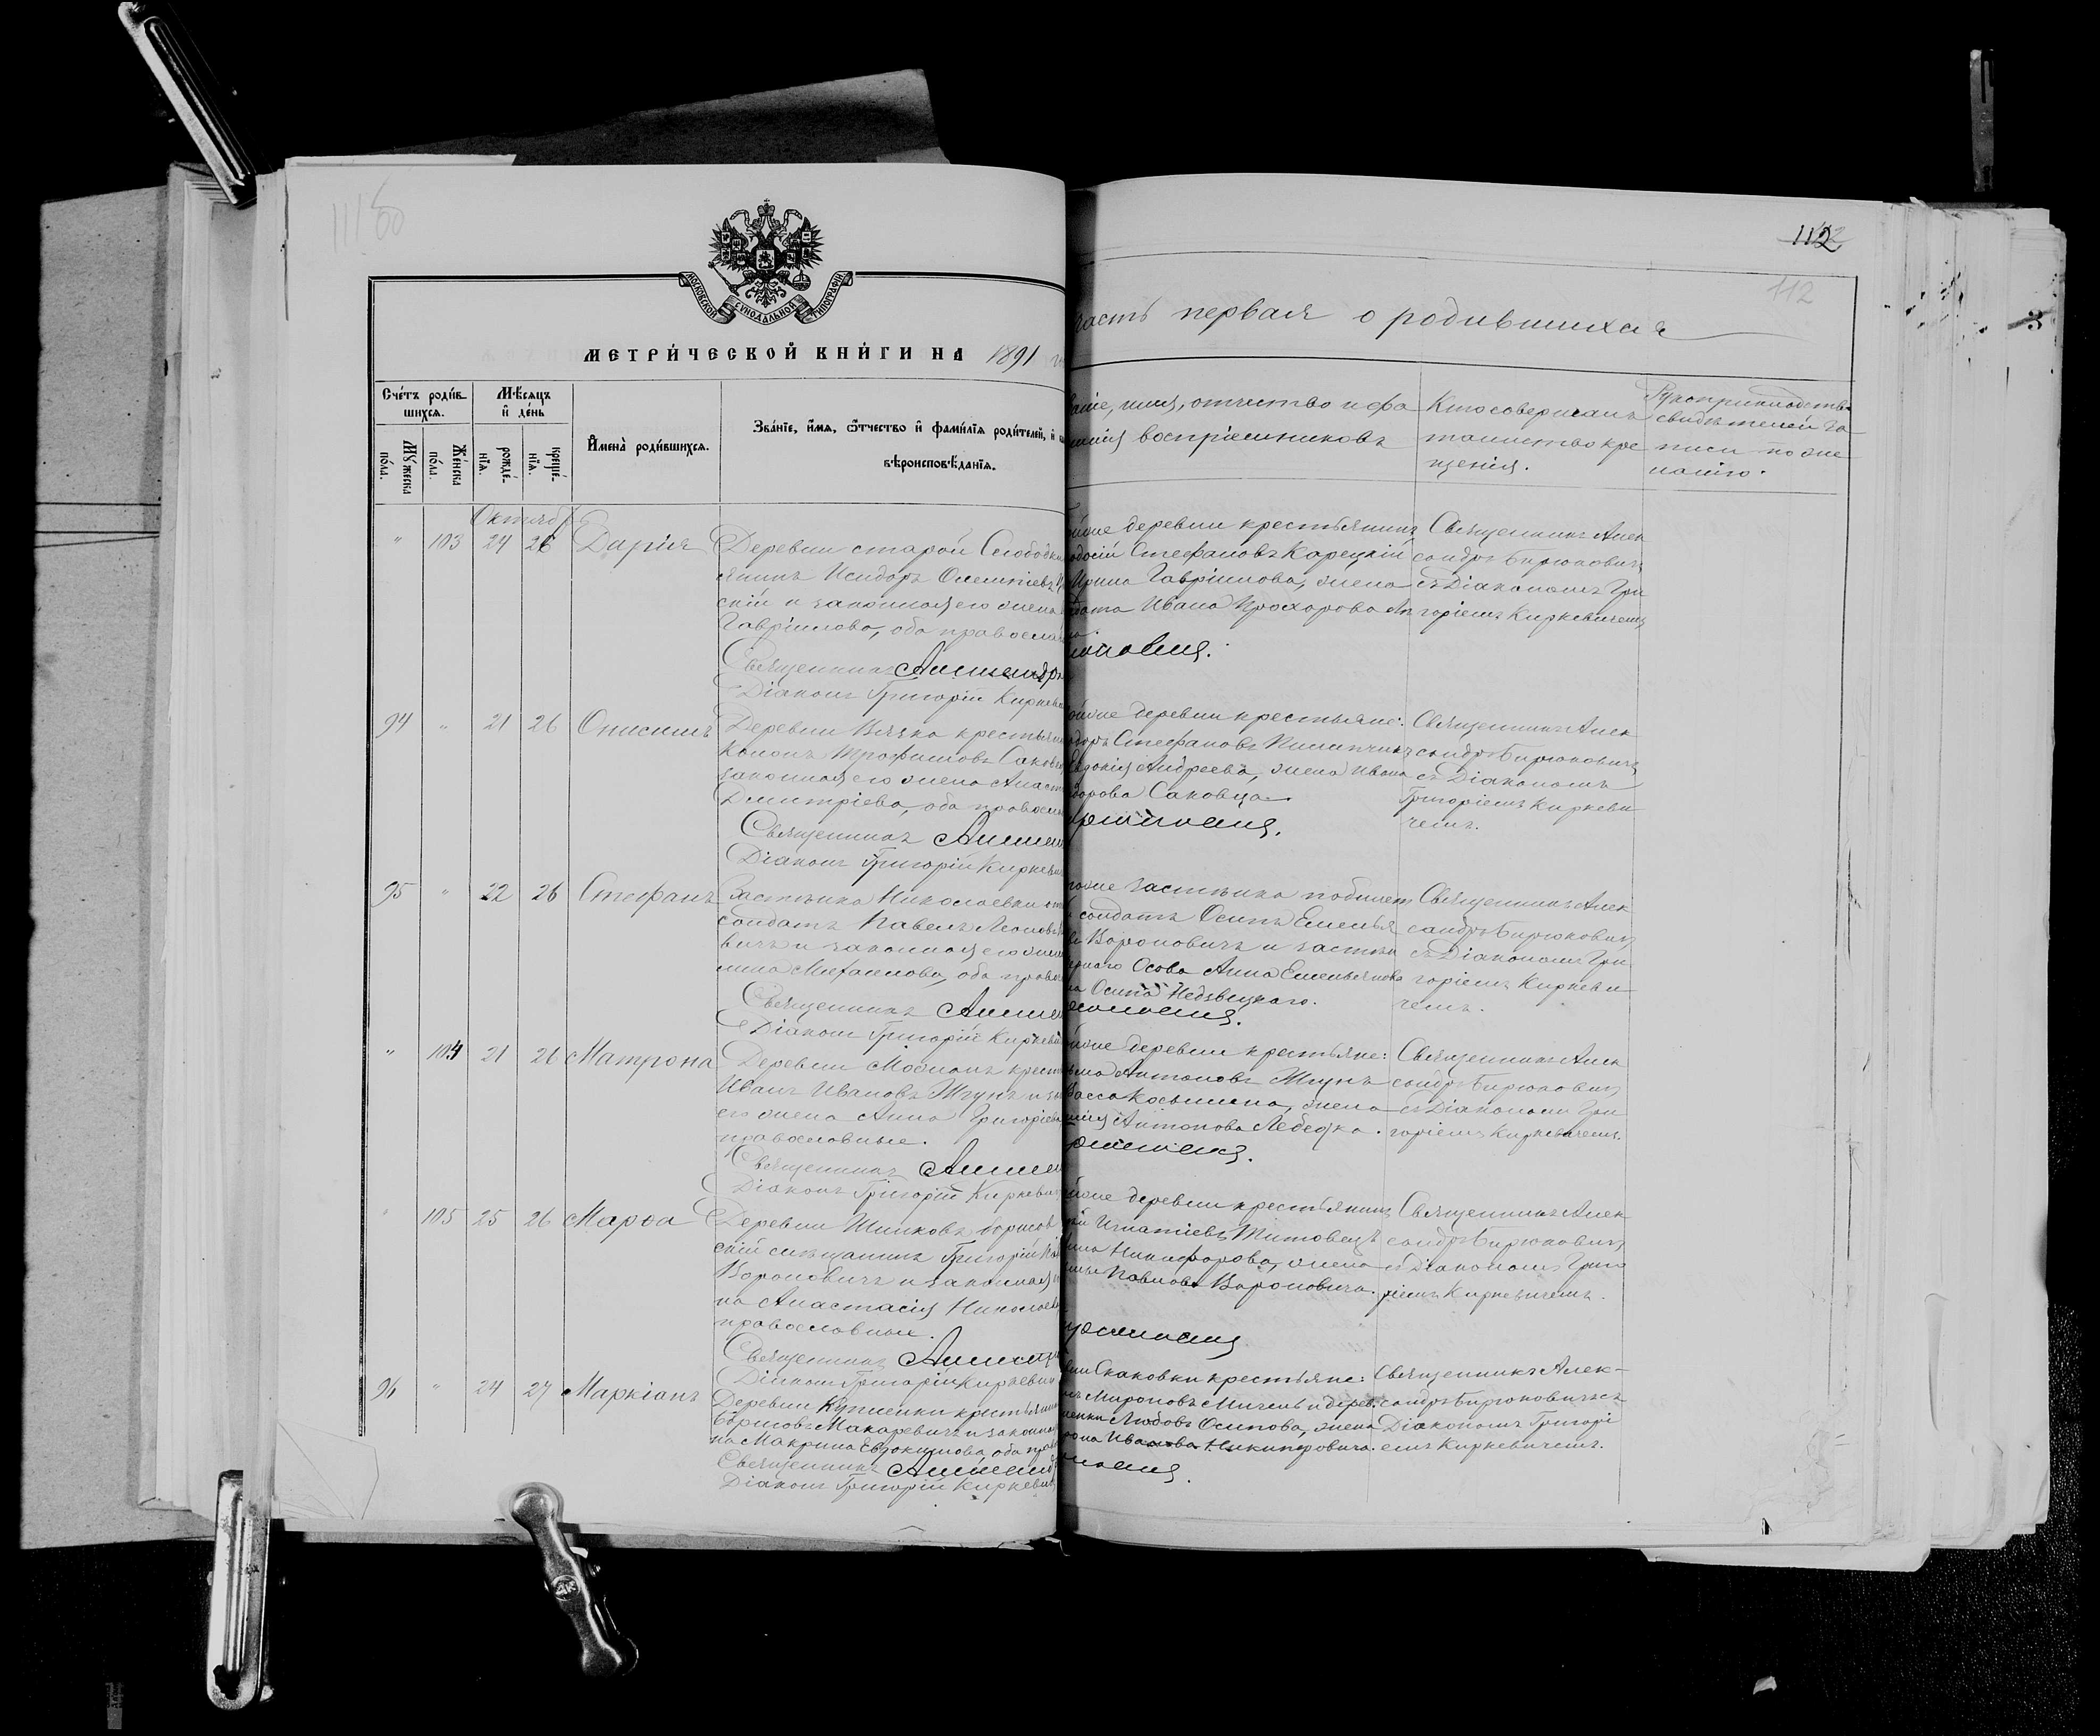 11180
112
112
МОСКОВСКОЙ СѴНОДАЛЬНОЙ ТИПОГРАФІИ
часть первая о родившихся
МЕТРИ́ЧЕСКОЙ КНИ́ГИ НА 1891
Сче́тъ роди́в-
шихся.
Мѣ́сяцъ
и҆ де́нь
Му́жеска
по́ла.
Же́нска
по́ла.
рожде́-
нїѧ.
креще́-
нїѧ.
И҆мена̀ роди́вшихся.
Зва́нїе, и҆́мѧ, ѻ҆́тчество и҆ фами́лїѧ роди́телей, и҆
вѣроисповѣ́данїѧ.
ваніе, имя, отчество и фа
милія воспріемниковъ
Кто совершалъ
таинство кре
щенія.
Рукоприкладство
свидѣтелей за
писи по же
ланію.
Октябрь
" 103 24 26 Дарія
Деревни старой Слободки
янинъ Исидоръ
скій и законная его жена
Гавріилова, оба православ
Священникъ Александръ
Діаконъ Григорій Киркеви
деревни крестьянинъ
Стефановъ Карецкій
Ирина Гавріилова, жена
Ивана Прохорова
Священникъ Алек
сандръ Бирюковичъ
съ Діакономъ Гри
горіемъ Киркевичемъ
94 " 21 26 Онисимъ
Деревни Вязка крестьянинъ
Трофимовъ Сакове
законная его жена Анаст
Димитріева, оба правосл
Священникъ Алексан
Діаконъ Григорій Киркеви
деревни крестьяне:
Стефановъ Пилипчикъ
Евдокія Андреева, жена Ивана
Саковца
Священникъ Алек
сандръ Бирюковичъ
съ Діакономъ
Григоріемъ Киркеви
чемъ.
95 " 22 26 Стефанъ
Застѣнка Николаевки
солдатъ Павелъ Леоновъ
вичъ и законная его жена
оба право
Священникъ Алекс
Діаконъ Григорій Киркеви
застѣнка
солдатъ Осипъ Емелья
Вороновичъ и застѣн
Осова Анна Емельянова
Осипа Недзвецкаго.
Священникъ Алек
сандръ Бирюковичъ
съ Діакономъ Гри
горіемъ Киркеви
чемъ.
" 104 21 26 Матрона
Деревни крест
Иванъ Ивановъ Жгунъ и за
его жена Анна Григорьева
православные.
Священникъ Алекс
Діаконъ Григорій Киркеви
деревни крестьяне:
Антоновъ Жгунъ
Косьмина, жена
Антонова Лебедка.
Священникъ Алек
сандръ Бирюковичъ
съ Діакономъ Гри
горіемъ Киркевичемъ.
" 105 25 26 Марѳа
Деревни Шилковъ борисов
скій мѣщанинъ Григорій
Вороновичъ и законная
на Анастасія Николаев
православные.
Священникъ Александ
Діаконъ Григорій Киркевич
деревни крестьянинъ
Игнатіевъ Титовецъ
Никифорова, жена
Павлова Вороновича.
Священникъ Алек
сандръ Бирюковичъ
съ Діакономъ Григо
ріемъ Киркевичемъ.
96 " 24 27 Маркіанъ
Деревни крестьянинъ
Борисовъ Макаревичъ и законная
на Макрина Евдокимова, оба прав
Священникъ Александ
Діаконъ Григорій Киркевич
Скаковки крестьяне:
Мироновъ
Любовь Осипова, жена
Иванова Никипоровича.
Священникъ Алек-
сандръ Бирюковичъ съ
Діакономъ Григорі
емъ Киркевичемъ.